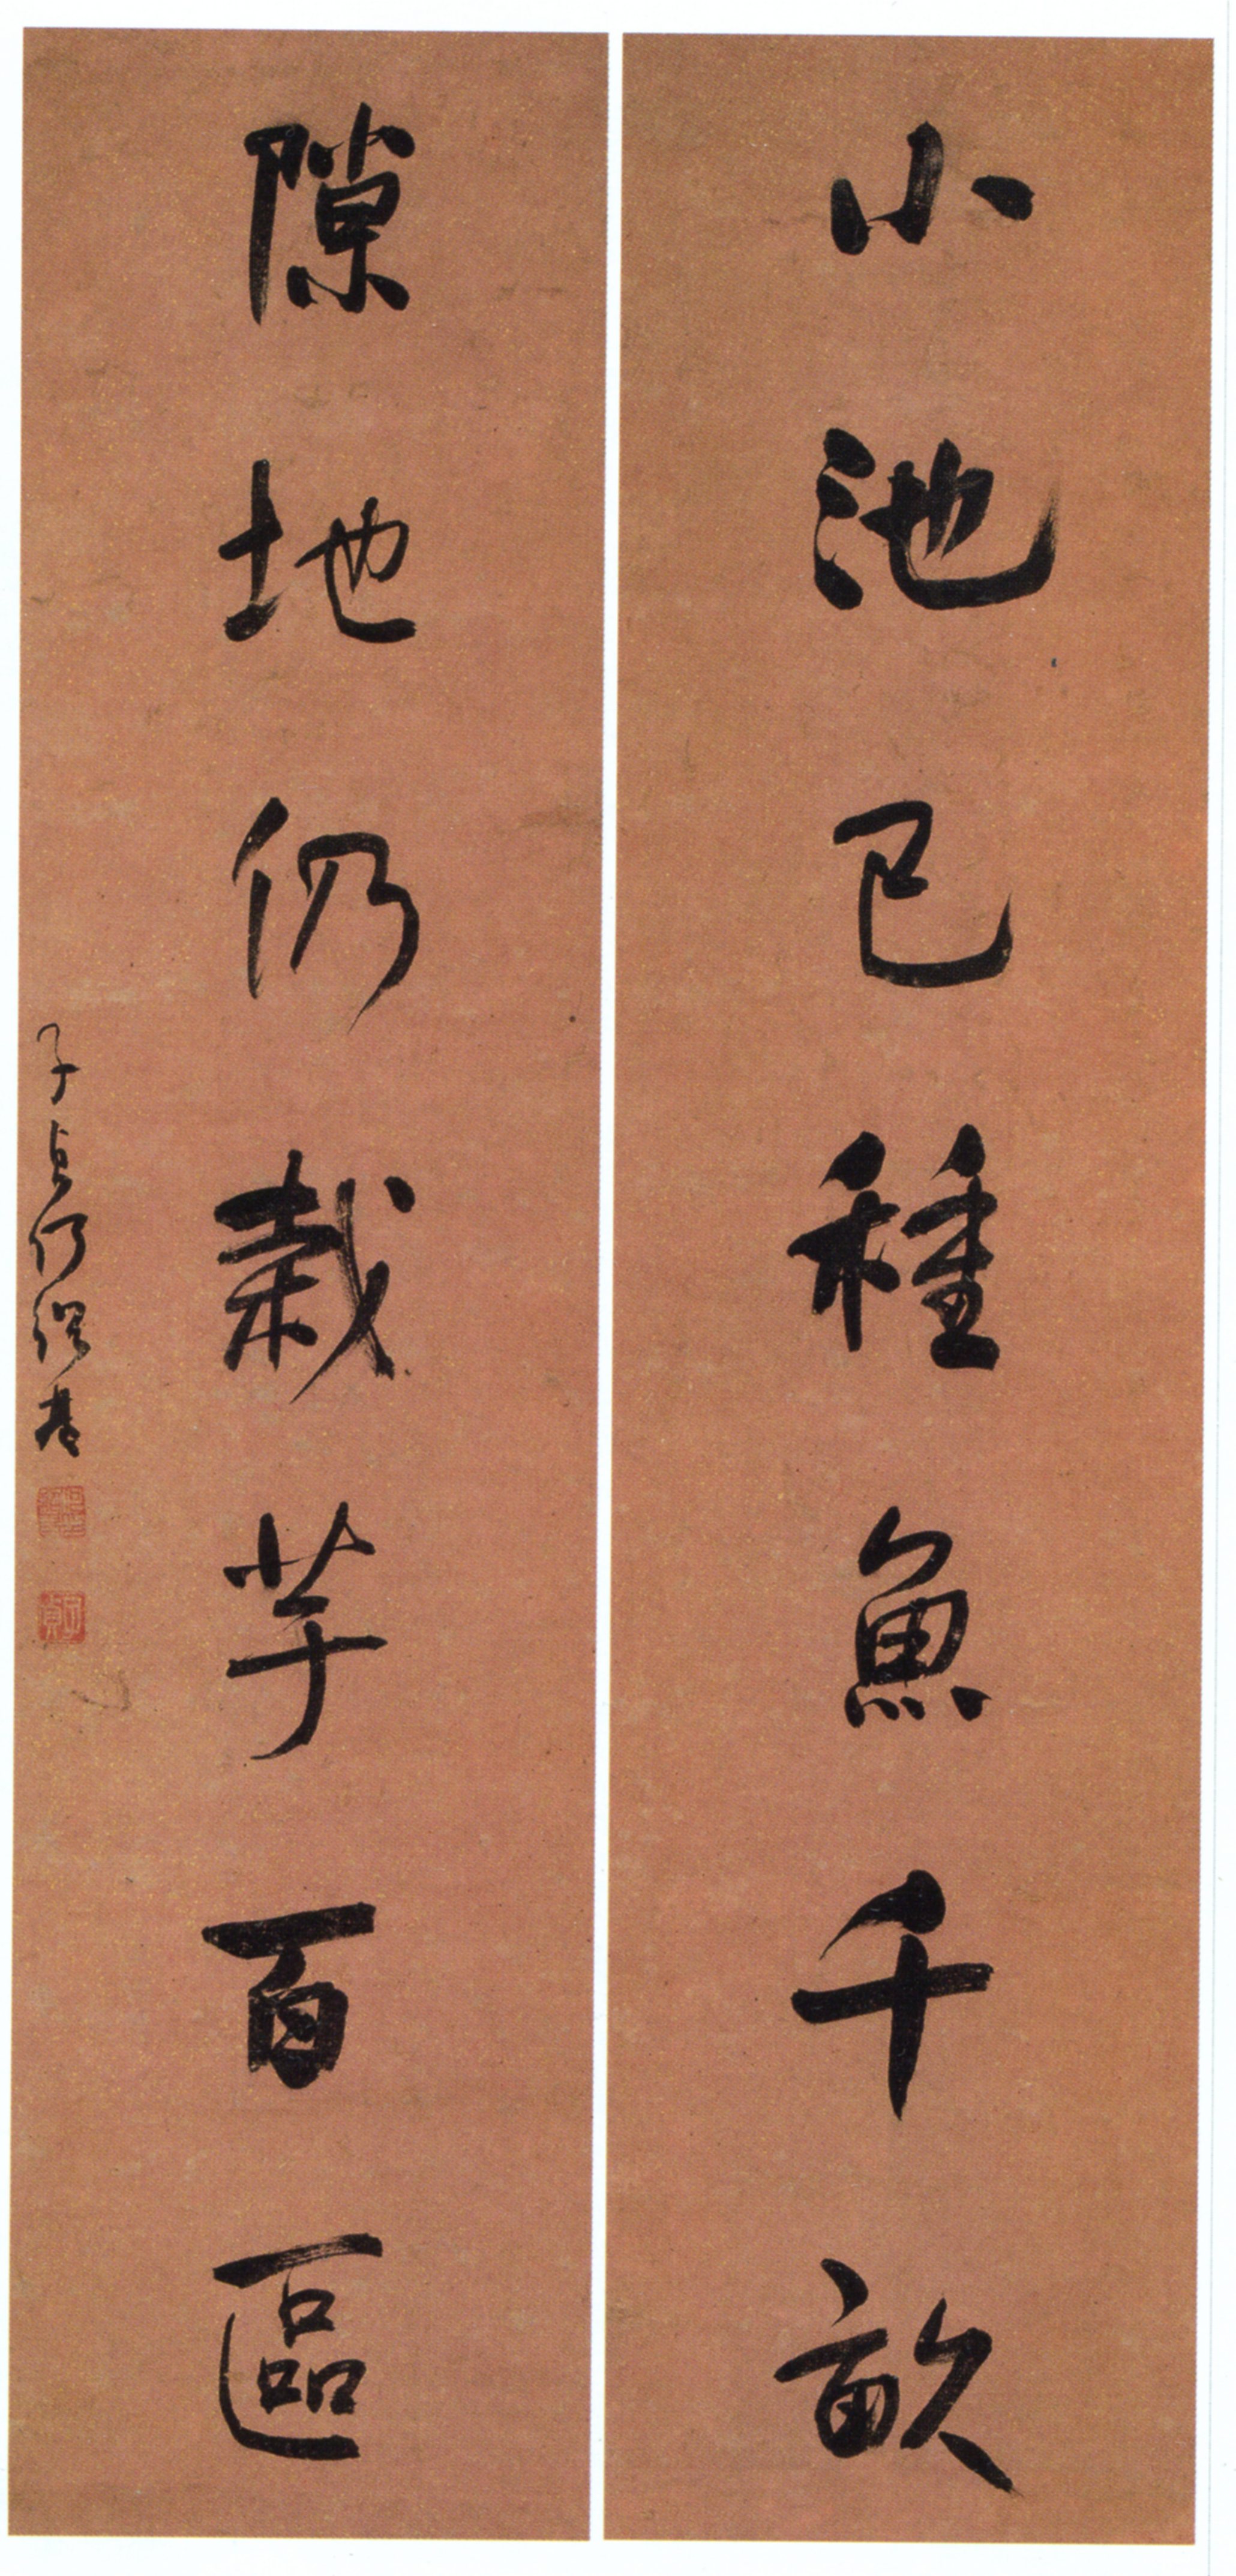 小池已種魚千畝
隙地仍栽芋百區
子貞何紹基
子貞